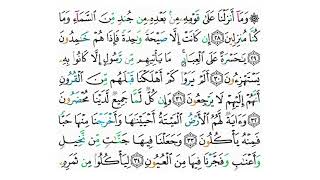 ۞ وَمَآ أَنزَلْنَا عَلَىٰ قَوْمِهِۦ مِنۢ بَعْدِهِۦ مِن جُندٍ مِّنَ ٱلسَّمَآءِ وَمَا
كُنَّا مُنزِلِينَ ٢٨ إِن كَانَتْ إِلَّا صَيْحَةً وَٰحِدَةً فَإِذَا هُمْ خَٰمِدُونَ
٢٩ يَٰحَسْرَةً عَلَى ٱلْعِبَادِ ۚ مَا يَأْتِيهِم مِّن رَّسُولٍ إِلَّا كَانُوا۟ بِهِۦ
يَسْتَهْزِءُونَ ٣٠ أَلَمْ يَرَوْا۟ كَمْ أَهْلَكْنَا قَبْلَهُم مِّنَ ٱلْقُرُونِ
أَنَّهُمْ إِلَيْهِمْ لَا يَرْجِعُونَ ٣١ وَإِن كُلٌّ لَّمَّا جَمِيعٌ لَّدَيْنَا مُحْضَرُونَ
٣٢ وَءَايَةٌ لَّهُمُ ٱلْأَرْضُ ٱلْمَيْتَةُ أَحْيَيْنَٰهَا وَأَخْرَجْنَا مِنْهَا حَبًّا
فَمِنْهُ يَأْكُلُونَ ٣٣ وَجَعَلْنَا فِيهَا جَنَّٰتٍ مِّن نَّخِيلٍ
وَأَعْنَٰبٍ وَفَجَّرْنَا فِيهَا مِنَ ٱلْعُيُونِ ٣٤ لِيَأْكُلُوا۟ مِن ثَمَرِهِۦ